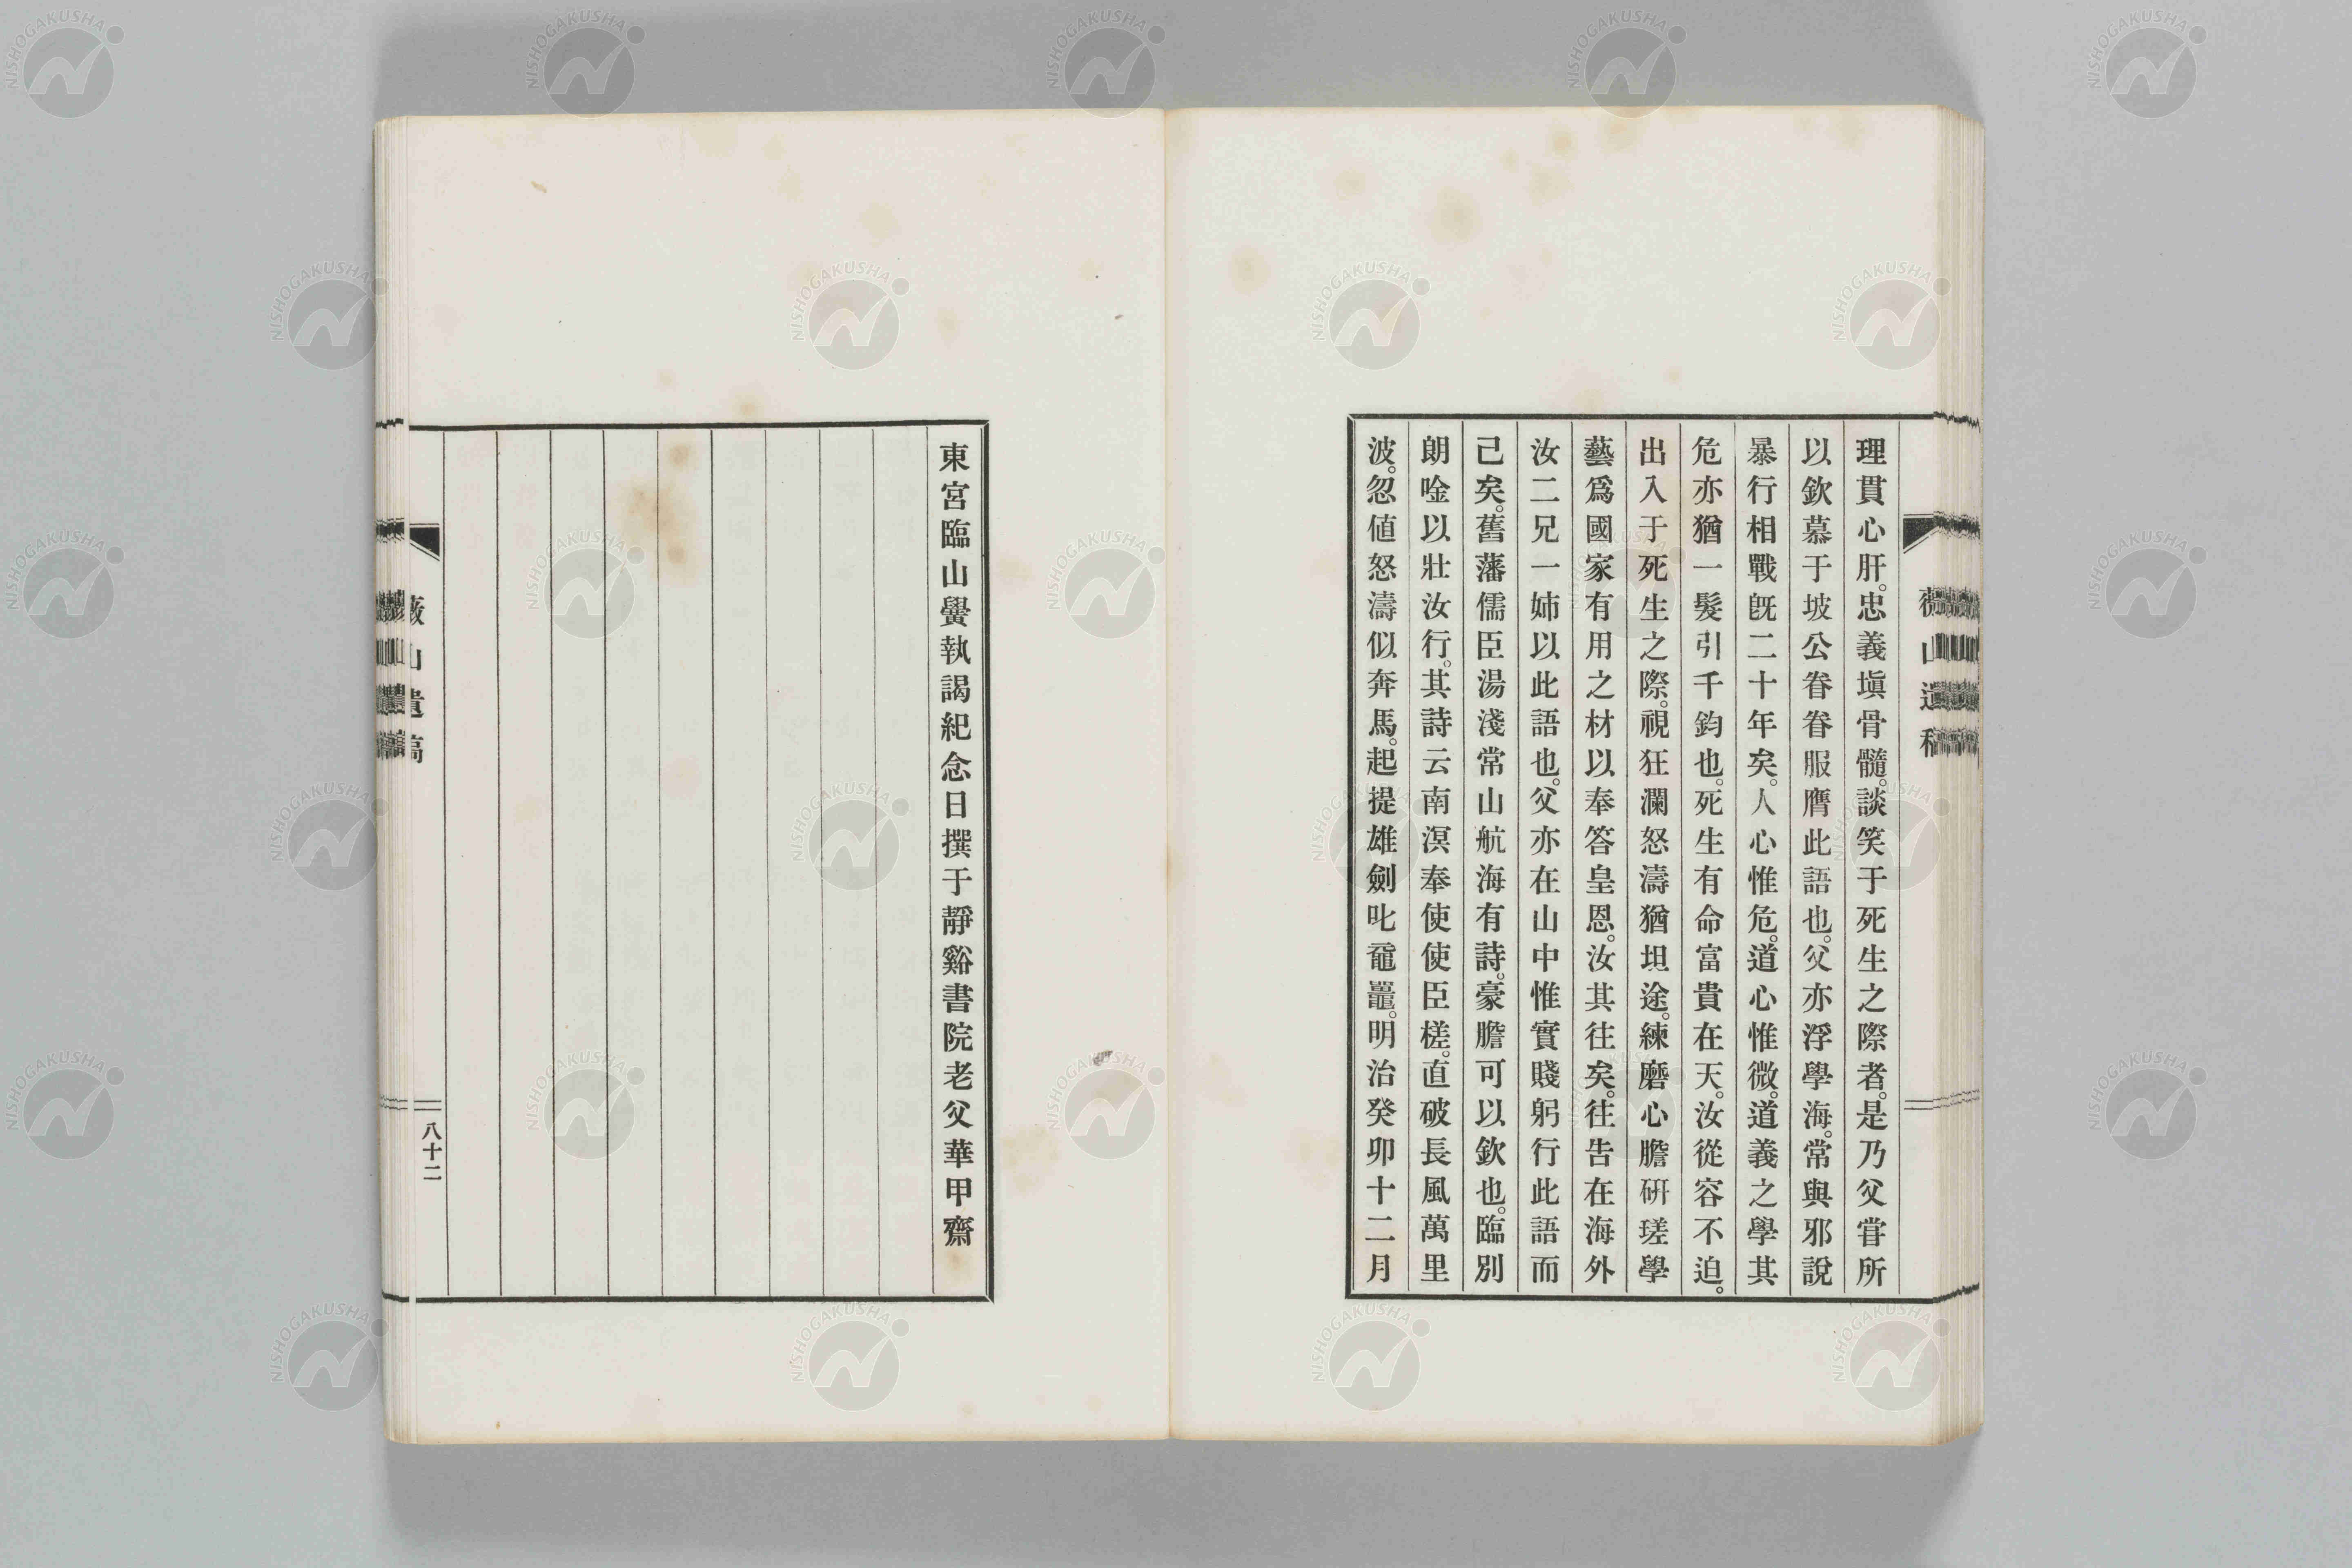 理貫心肝。忠義塡骨髓。談笑于死生之際者。是乃父甞所
以欽慕于坡公眷眷服膺此語也。父亦浮學海。常與邪說
暴行相戰旣二十年矣。人心惟危。道心惟微。道義之學其
危亦猶一髮引千鈞也。死生有命富貴在天。汝從容不迫。
出入于死生之際。視狂瀾怒濤猶坦途。練磨心膽硏瑳學
藝爲國家有用之材以奉答皇恩。汝其往矣。往吿在海外
汝二兄一姉以此語也。父亦在山中惟實踐躬行此語而
已矣。舊藩儒臣湯淺常山航海有詩。豪膽可以欽也。臨別
朗唫以壯汝行。其詩云南溟奉使使臣槎。直破長風萬里
波。忽値怒濤似奔馬。起提雄劍叱黿鼉。明治癸卯十二月
東宮臨山黌執謁紀念日撰于靜谿書院老父華甲齋
薇山遺稿
八十二
NISHOGAKUSHA